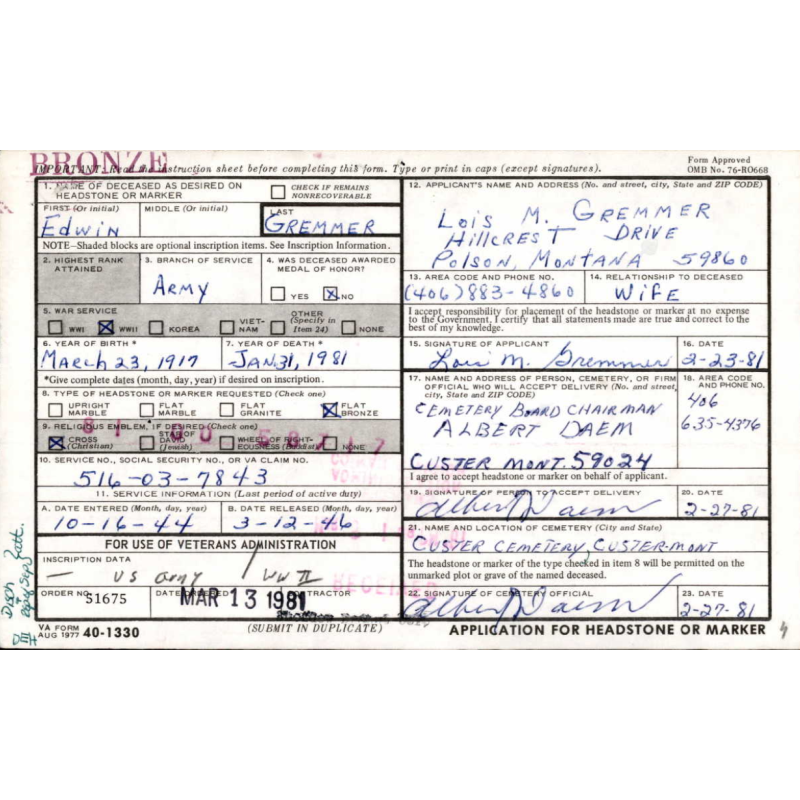 BRONZE
IMPORTANT: Read the instruction sheet before completing this form. Type or print in caps (except signatures).
Form Approved
OMB No. 76-RO668
1. NAME OF DECEASED AS DESIRED ON HEADSTONE OR MARKER
CHECK IF REMAINS NONRECOVERABLE
FIRST (Or initial) MIDDLE (Or initial) LAST
Edwin GREMMER
NOTE—Shaded blocks are optional inscription items. See Inscription Information.
2. HIGHEST RANK ATTAINED
3. BRANCH OF SERVICE
ARMY
4. WAS DECEASED AWARDED MEDAL OF HONOR?
YES NO
5. WAR SERVICE
WWI WWII KOREA VIET-NAM OTHER (Specify in Item 24) NONE
6. YEAR OF BIRTH * 7. YEAR OF DEATH *
MARCH 23, 1917 JAN 31, 1981
*Give complete dates (month, day, year) if desired on inscription.
8. TYPE OF HEADSTONE OR MARKER REQUESTED (Check one)
UPRIGHT MARBLE FLAT MARBLE FLAT GRANITE FLAT BRONZE
9. RELIGIOUS EMBLEM, IF DESIRED (Check one)
CROSS (Christian) STAR OF DAVID (Jewish) WHEEL OF RIGHTEOUSNESS (Buddist) NONE
10. SERVICE NO., SOCIAL SECURITY NO., OR VA CLAIM NO.
516-03-7843
11. SERVICE INFORMATION (Last period of active duty)
A. DATE ENTERED (Month, day, year) B. DATE RELEASED (Month, day, year)
10-16-44 3-12-46
FOR USE OF VETERANS ADMINISTRATION
INSCRIPTION DATA
— US army / WW II
ORDER NO. S1675 DATE ORDERED MAR 13 1981 CONTRACTOR
VA FORM AUG 1977 40-1330
(SUBMIT IN DUPLICATE)
12. APPLICANT'S NAME AND ADDRESS (No. and street, city, State and ZIP CODE)
LOIS M. GREMMER
HILLCREST DRIVE
POLSON, MONTANA 59860
13. AREA CODE AND PHONE NO. 14. RELATIONSHIP TO DECEASED
(406) 883-4860 WIFE
I accept responsibility for placement of the headstone or marker at no expense to the Government. I certify that all statements made are true and correct to the best of my knowledge.
15. SIGNATURE OF APPLICANT 16. DATE
Lois M. Gremmer 2-23-81
17. NAME AND ADDRESS OF PERSON, CEMETERY, OR FIRM OFFICIAL WHO WILL ACCEPT DELIVERY (No. and street, city, State and ZIP CODE)
18. AREA CODE AND PHONE NO.
CEMETERY BOARD CHAIRMAN
ALBERT DAEM
CUSTER MONT. 59024
406
635-4376
I agree to accept headstone or marker on behalf of applicant.
19. SIGNATURE OF PERSON TO ACCEPT DELIVERY 20. DATE
Albert Daem 2-27-81
21. NAME AND LOCATION OF CEMETERY (City and State)
CUSTER CEMETERY, CUSTER-MONT
The headstone or marker of the type checked in item 8 will be permitted on the unmarked plot or grave of the named deceased.
22. SIGNATURE OF CEMETERY OFFICIAL 23. DATE
Albert Daem 2-27-81
APPLICATION FOR HEADSTONE OR MARKER